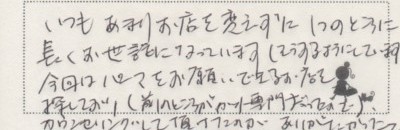 いつもあまりお店を変えずに1つのところに
長くお世話になっています(そうするようにしています
今回はパーマをお願いできるお店を
探しており(前のところがカット専門だったので)、
カウンセリングして頂けたのが ありがたかった